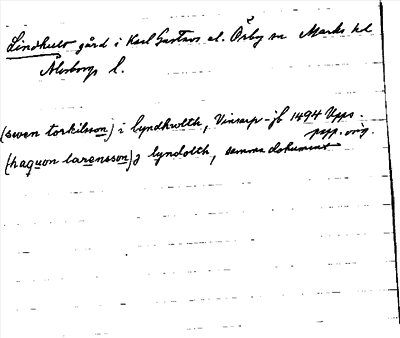 Lindhult gård i Karl Gustavs el. Örby sn Marks hd
Älvsborgs l.
(swen torkilsson) i lyndhwlth, Vinsarp-jb 1494 Upps.
papp. orig.
(haquon larensson) j lyndolth, samma dokument